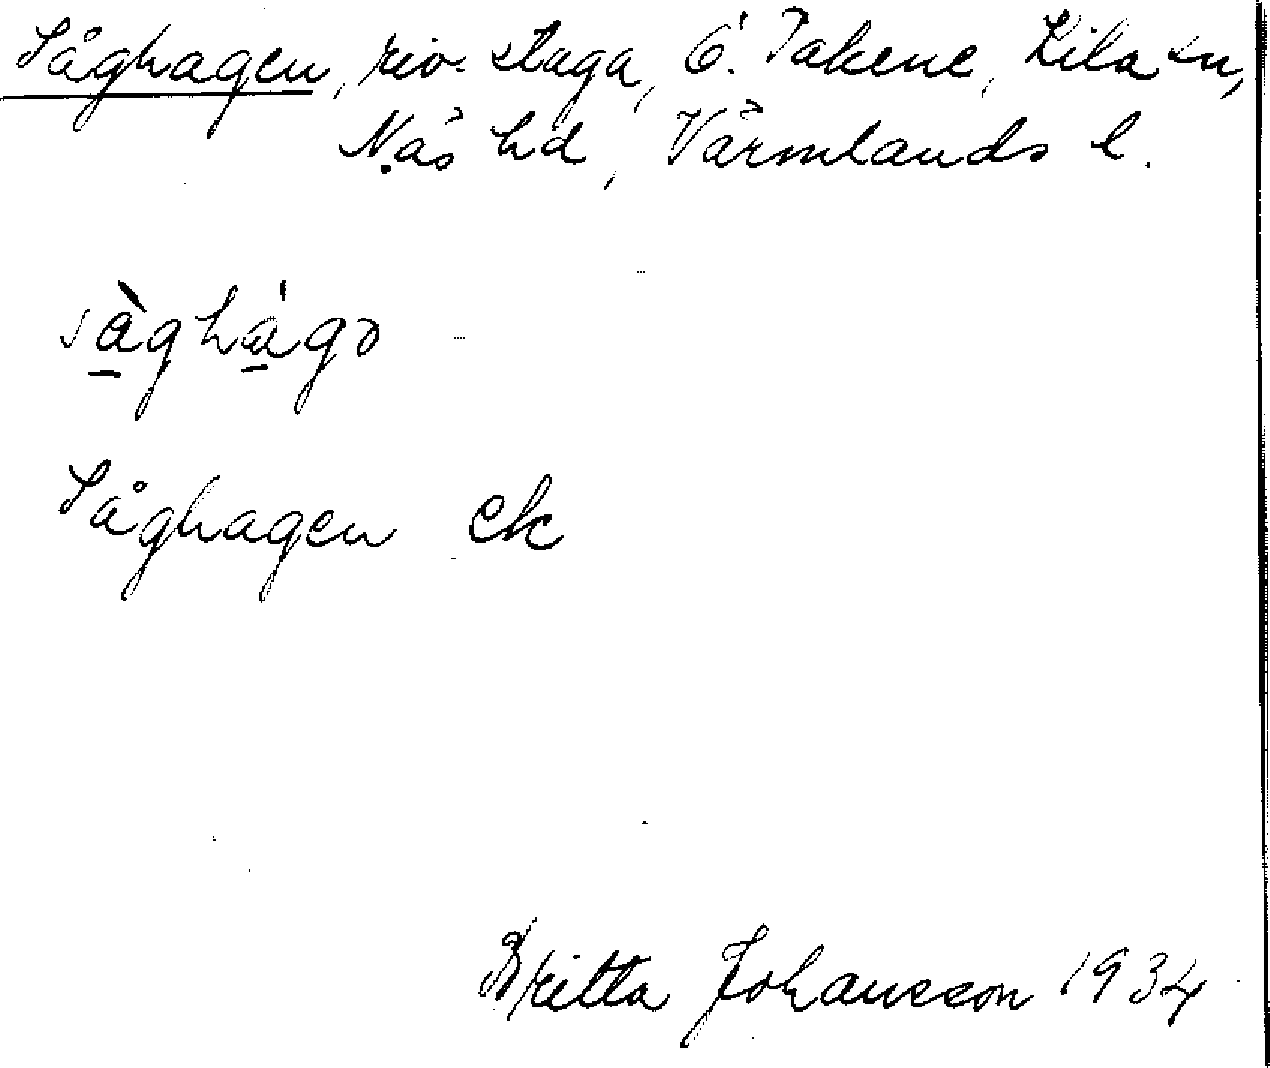 Såghagen, riv. stuga, Ö. Takene, Kila sn,
Näs hd, Värmlands l.
såghágə
Såghagen ek
Britta Johansson 1934